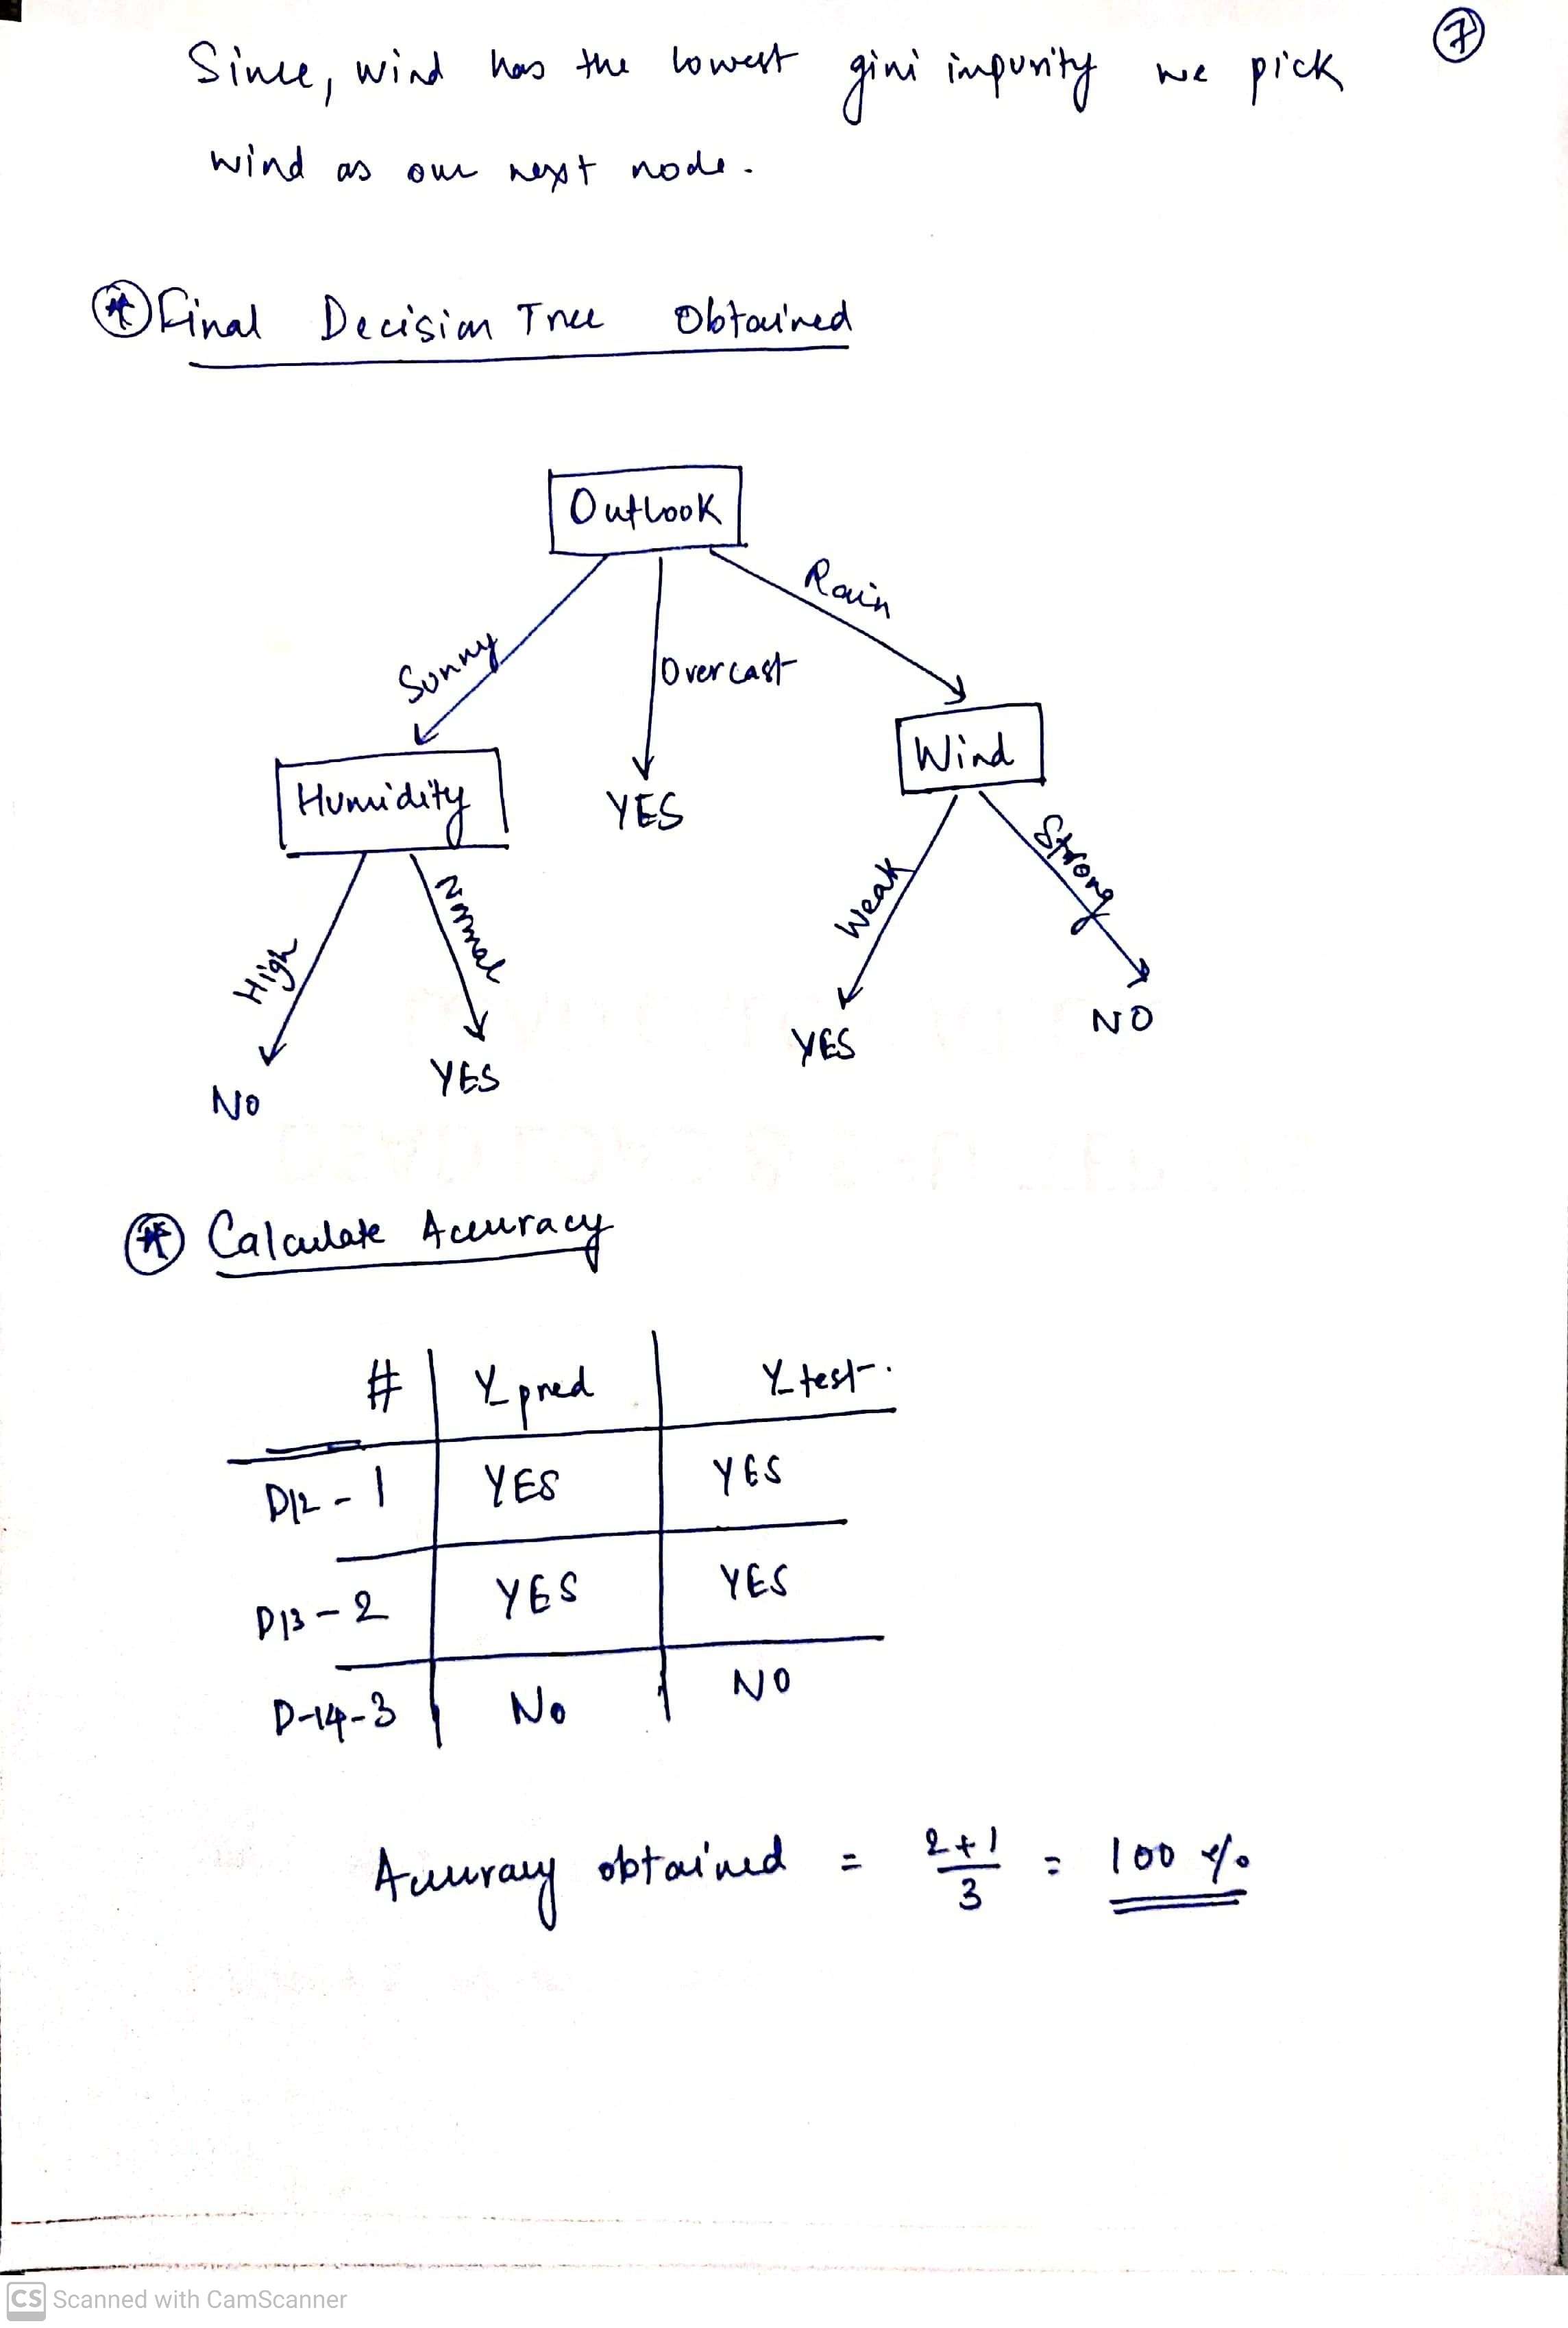 7
Since, wind has the lowest gini impurity we pick
wind as our next node.
* Final Decision Tree Obtained
Outlook
Rain
Sunny
Overcast
Wind
Humidity
YES
Strong
Weak
Normal
High
NO
YES
YES
NO
* Calculate Accuracy
# Y_pred Y_test.
D12 - 1 YES YES
D13 - 2 YES YES
D-14-3 No NO
Accuracy obtained = 2+1/3 = 100 %
CS Scanned with CamScanner